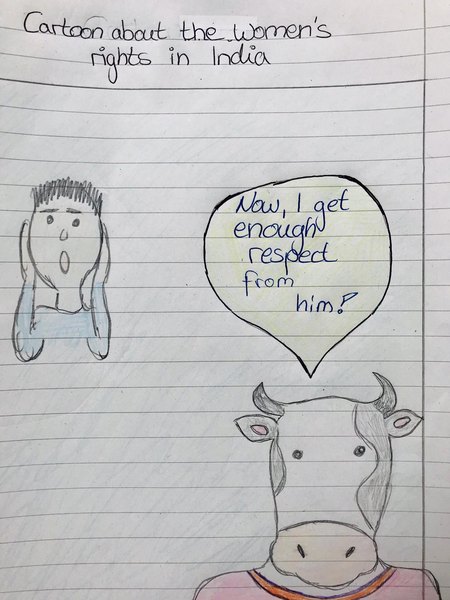 Cartoon about the women's
rights in India
Now, I get
enough
respect
from
him?